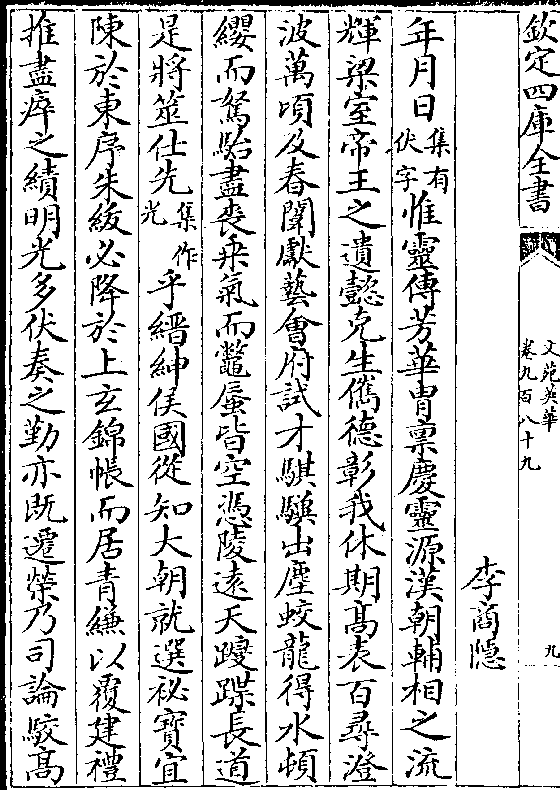 欽定四庫全書
文苑英華
卷九百八十九
九
李商隱
年月日集有伏字惟靈傳芳華胄禀慶靈源漢朝輔相之流
輝梁室帝王之遺懿克生儁德彰我休期髙表百尋澄
波萬頃及春闈獻藝㑹府試才騏驥出塵蛟龍得水頓
纓而駑駘盡喪乗氣而鼈蜃皆空憑陵逺天躞蹀長道
是將筮仕先集作光乎縉紳侯國從知大朝就選祕寶宜
陳於東序朱紱必降於上玄錦帳而居青縑以覆建禮
推盡瘁之績明光多伏奏之勤亦既遷榮乃司論駮髙